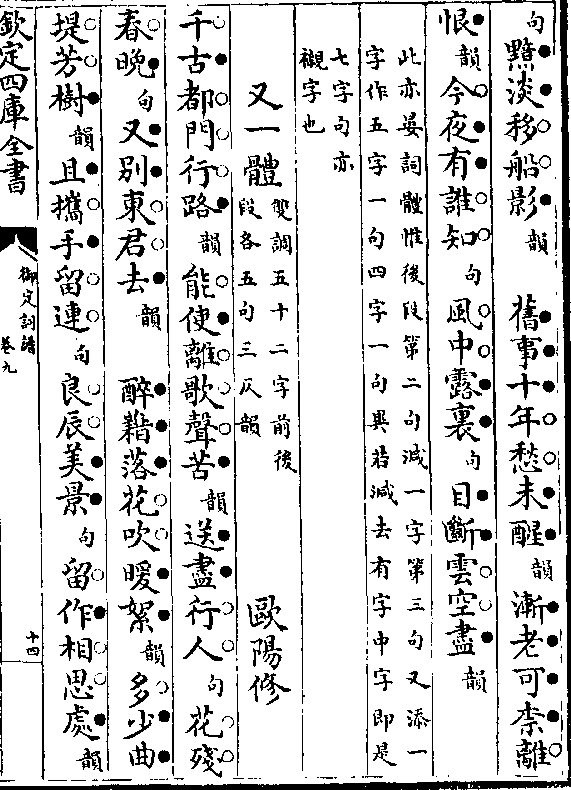 句黯淡移船影韻　舊事十年愁未醒韻漸老可柰離
恨韻今夜有誰知句風中露裏句目斷雲空盡韻
此亦晏詞體惟後段第二句減一字第三句又添一
字作五字一句四字一句異若減去有字中字即是
七字句亦
襯字也
又一體雙調五十二字前後
段各五句三仄韻　歐陽修
千古都門行路韻能使離歌聲苦韻送盡行人句花殘
春晚句又別東君去韻　醉藉落花吹暖絮韻多少曲
堤芳樹韻且攜手留連句良辰美景句留作相思處韻
欽定四庫全書
御定詞譜
卷九
十四